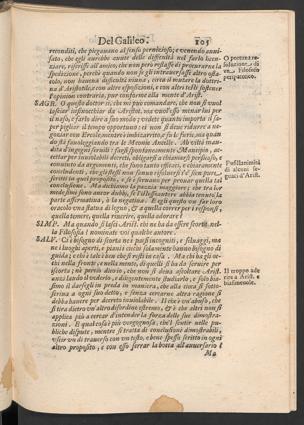 Del Galileo. 105
reconditi, che piegavano al senso pernizioso; e venendo avvi-
sato, che egli aurebbe avute delle difficultà nel farlo licen-
ziare, rispose all'amico, che non però restasse di procurarne la
spedizione, perchè quando non se gli intrauersasse altro osta-
colo, non haveua difficultà niuna, circa il mutare la dottri-
na d'Aristotile, e con altre esposizioni, e con altri testi sostener
l'opinion contraria, pur conforme alla mente d'Arist.
SAGR. O questo dottor sì, che mi può comandare, che non si vuol
lasciar infinocchiar da Aristotile, ma vuol esso menar lui per
il naso, e farlo dire a suo modo; vedete quanto importa il sa-
per pigliar il tempo opportuno: ei non si deve ridurre a ne-
goziar con Ercole, mentre è imbizzarrito, e sù le furie, ma quan-
do stà favoleggiando tra le Meonie Ancelle. Ah viltà inau-
dita d'ingegni servili: farsi spontaneamente Mancipio, ac-
cettar per inviolabili decreti, obligarsi a chiamarsi persuaso, e
convinto da argumenti, che sono tanto efficaci, e chiaramente
concludenti, che gli stessi non sanno risolversi s'e' sien pure
scritti in quel proposito, e se e' servano per provar quella tal
conclusione. Ma dichiamo la pazzia maggiore; che tra lor
medesimi sono ancor dubbii, se l'istesso Autore abbia tenuto la
parte affermativa, ò la negativa. È egli questo un far loro
oracolo una statua di legno, & a quella correr per i responsi,
quella temere, quella riverire, quella adorare?
SIMP. Ma quando si lasci Arist. chi ne ha da essere scorta nel-
la Filosofia? nominate voi qualche autore.
SALV. Ci è bisogno di scorta nei paesi incogniti, e selvaggi, ma
ne i luoghi aperti, e piani i ciechi solamente hanno bisogno di
guida; e chi è tale è ben che si resti in casa. Ma chi hà gli oc-
chi nella fronte, e nella mente, di quelli si hà da servire per
iscorta; nè perciò dico io, che non si deva ascoltare Arist.
anzi laudo il vederlo, e diligentemente studiarlo, e solo bia-
simo il darsegli in preda in maniera, che alla cieca si sotto-
scriva a ogni suo detto, e senza cercarne altra ragione si
debba havere per decreto inviolabile. Il che è un'abuso, che
si tira dietro un'altro disordine estremo, & è che altri non si
applica più a cercar d'intender la forza delle sue dimostra-
zioni. E qual cosa è più vergognosa, che'l sentir nelle pu-
bliche dispute, mentre si tratta di conclusioni dimostrabili,
uscir un di traverso con un testo, e bene spesso scritto in ogni
altro proposito, e con esso serrar la bocca all'avversario?
Ma
O portuna re-
soluzione, di
un Filosofo
peripatetico.
Pusillanimità
di alcuni se-
guaci d'Arist.
Il troppo ade-
rire a Arist. è
biasimevole.